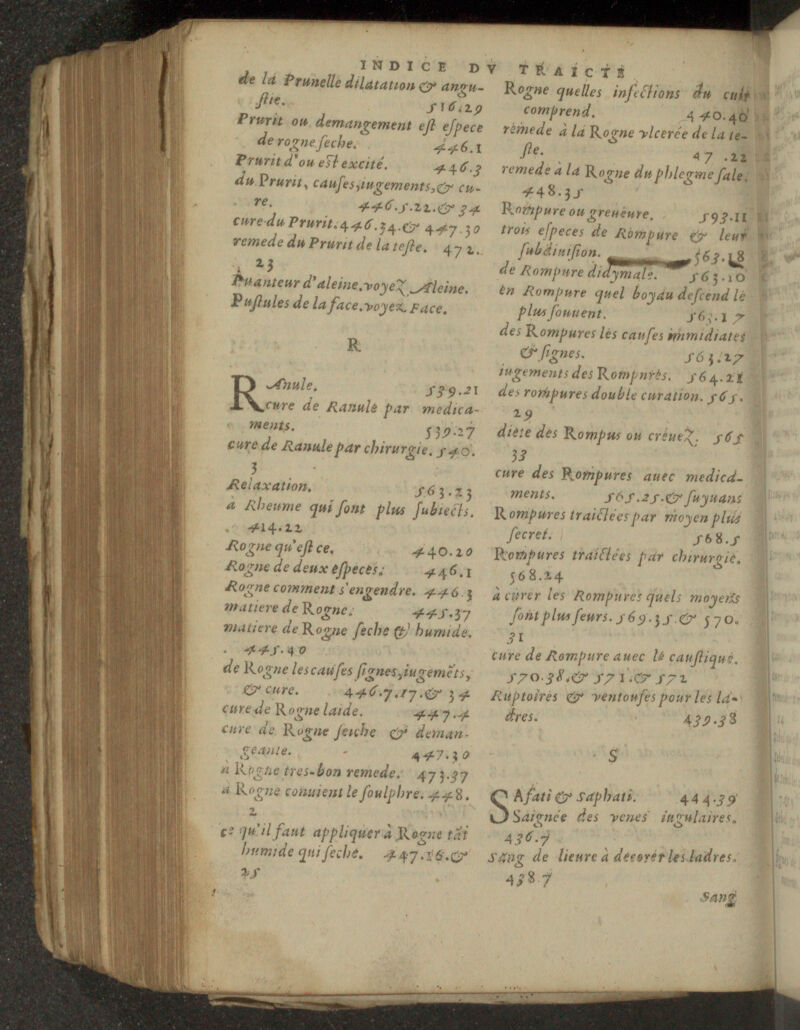 INDICE DV TRAICTE
de la Prunelle dilatation & angu-
stie. 516.29
Prurit ou demangement est espece
de rogne seche. 446.1
Prurit d'ou est excité. 446.3
du Prurit, causes, iugements, & cu-
re. 446.5.22.& 34
cure du Prurit. 446.34.& 447.30
remede du Prurit de la teste. 472.
23
Puanteur d'aleine, voyez Aleine.
Pustules de la face, voyez Face.
R
RAnule. 539.21
cure de Ranule par medica-
ments. 539.27
cure de Ranule par chirurgie. 540.
3
Relaxation. 563.23
a Rheume qui sont plus subiects.
414.22
Rogne qu'est ce. 440.20
Rogne de deux especes. 446.1
Rogne comment s'engendre. 446.3
matiere de Rogne. 445.37
matiere de Rogne seche & humide.
445.40
de Rogne les causes signes, iugemēts,
& cure. 446.7.17.& 34
cure de Rogne laide. 447.4
cure de Rogne seiche & deman-
geante. 447.30
a Rogne tres-bon remede. 473.37
a Rogne conuient le soulphre. 448.
2
ce qu'il faut appliquer à Rogne tāt
humide qui seche. 447.16.&
25
Rogne quelles infections du cuir
comprend. 440.40
remede à la Rogne vlcerée de la te-
ste. 47 .22
remede à la Rogne du phlegme sale.
448.35
Rompure ou greueure. 593.11
trois especes de Rompure & leur
subdiuision. 563.18
de Rompure didymale. 563.10
en Rompure quel boyau descend le
plus souuent. 563.17
des Rompures les causes immidiates
& signes. 563.27
iugements des Rompures. 564.21
des rompures double curation. 565.
29
diete des Rompus ou creuez. 565
33
cure des Rompures auec medica-
ments. 565.25.& suyuans
Rompures traictées par moyen plus
secret. 568.5
Rompures traictées par chirurgie.
568.24
à curer les Rompures quels moyens
sont plus seurs. 569.35.& 570.
31
cure de Rompure auec le caustique.
570.38.& 571.& 572
Ruptoires & ventouses pour les la-
dres. 439.38
S
SAfati & saphati. 444.39
Saignée des venes iugulaires.
436.7
sang de lieure à decorer les ladres.
438.7
Sang